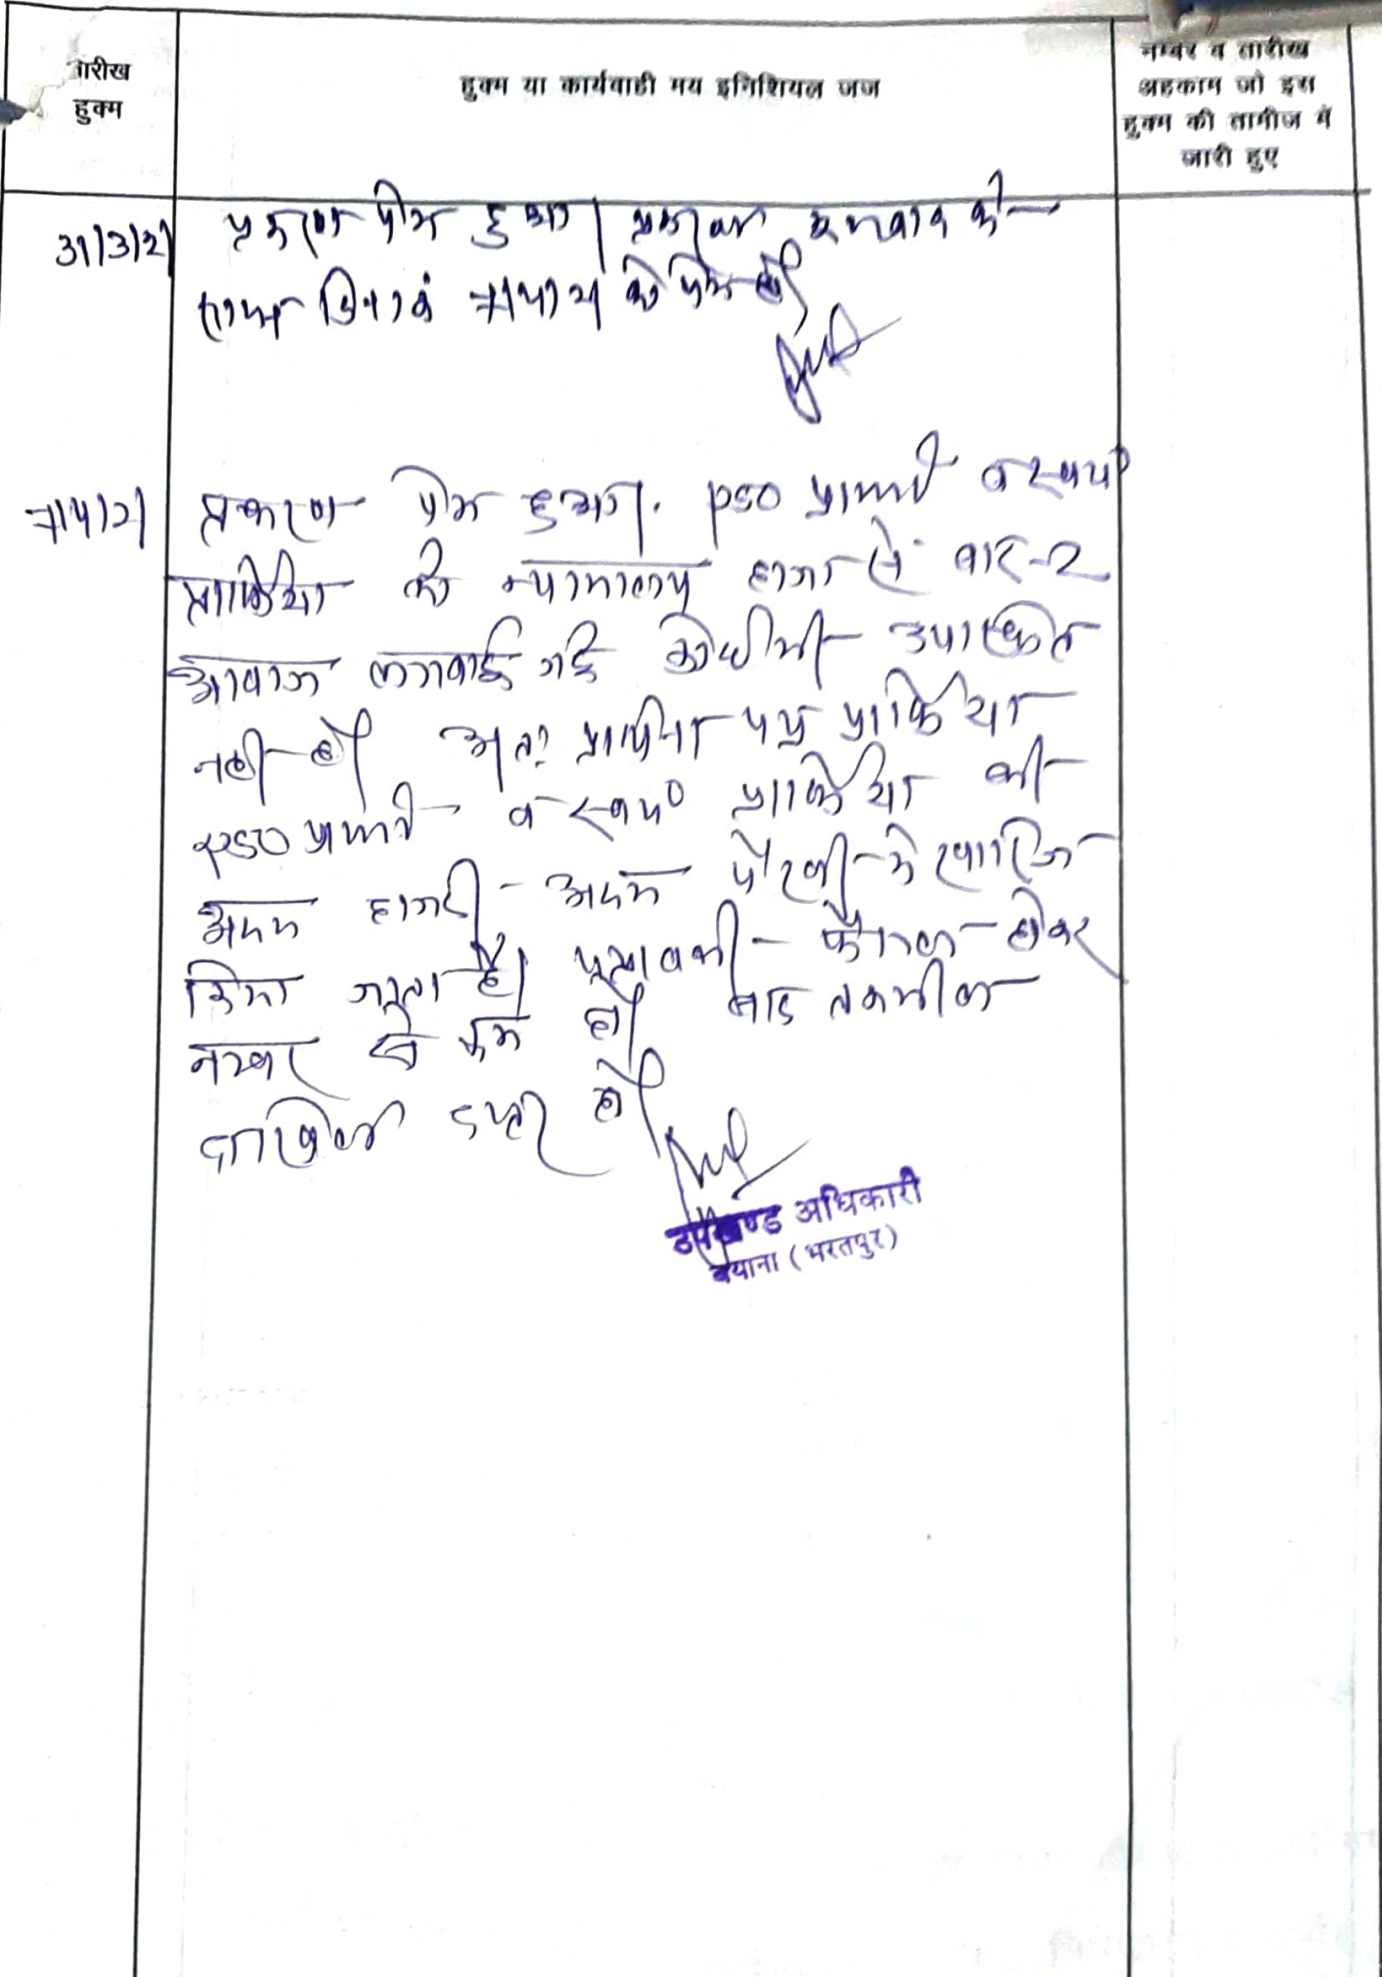 तारीख
हुक्म
हुक्म या कार्यवाही मय इनिशियल जज
नम्बर व तारीख
अहकाम जो इस
हुक्म की तामील में
जारी हुए
31/3/21
प्रकरण पेश हुआ। प्रकरण
दिनांक 7/4/21 को पेश हो
7/4/21
प्रकरण पेश हुआ। व स्वयं
प्रार्थिया को न्यायालय हाजा से बार-2
आवाज लगवाई गई कोई भी उपस्थित
नहीं हो अतः प्रार्थना पत्र प्रार्थिया
व स्वयं प्रार्थिया की
अदम हाजरी अदम पैरवी में खारिज
किया जाता है। पत्रावली फैसल होकर
नम्बर से कम हो बाद तकमील
दाखिल दफ्तर हो
उपखण्ड अधिकारी
बयाना (भरतपुर)